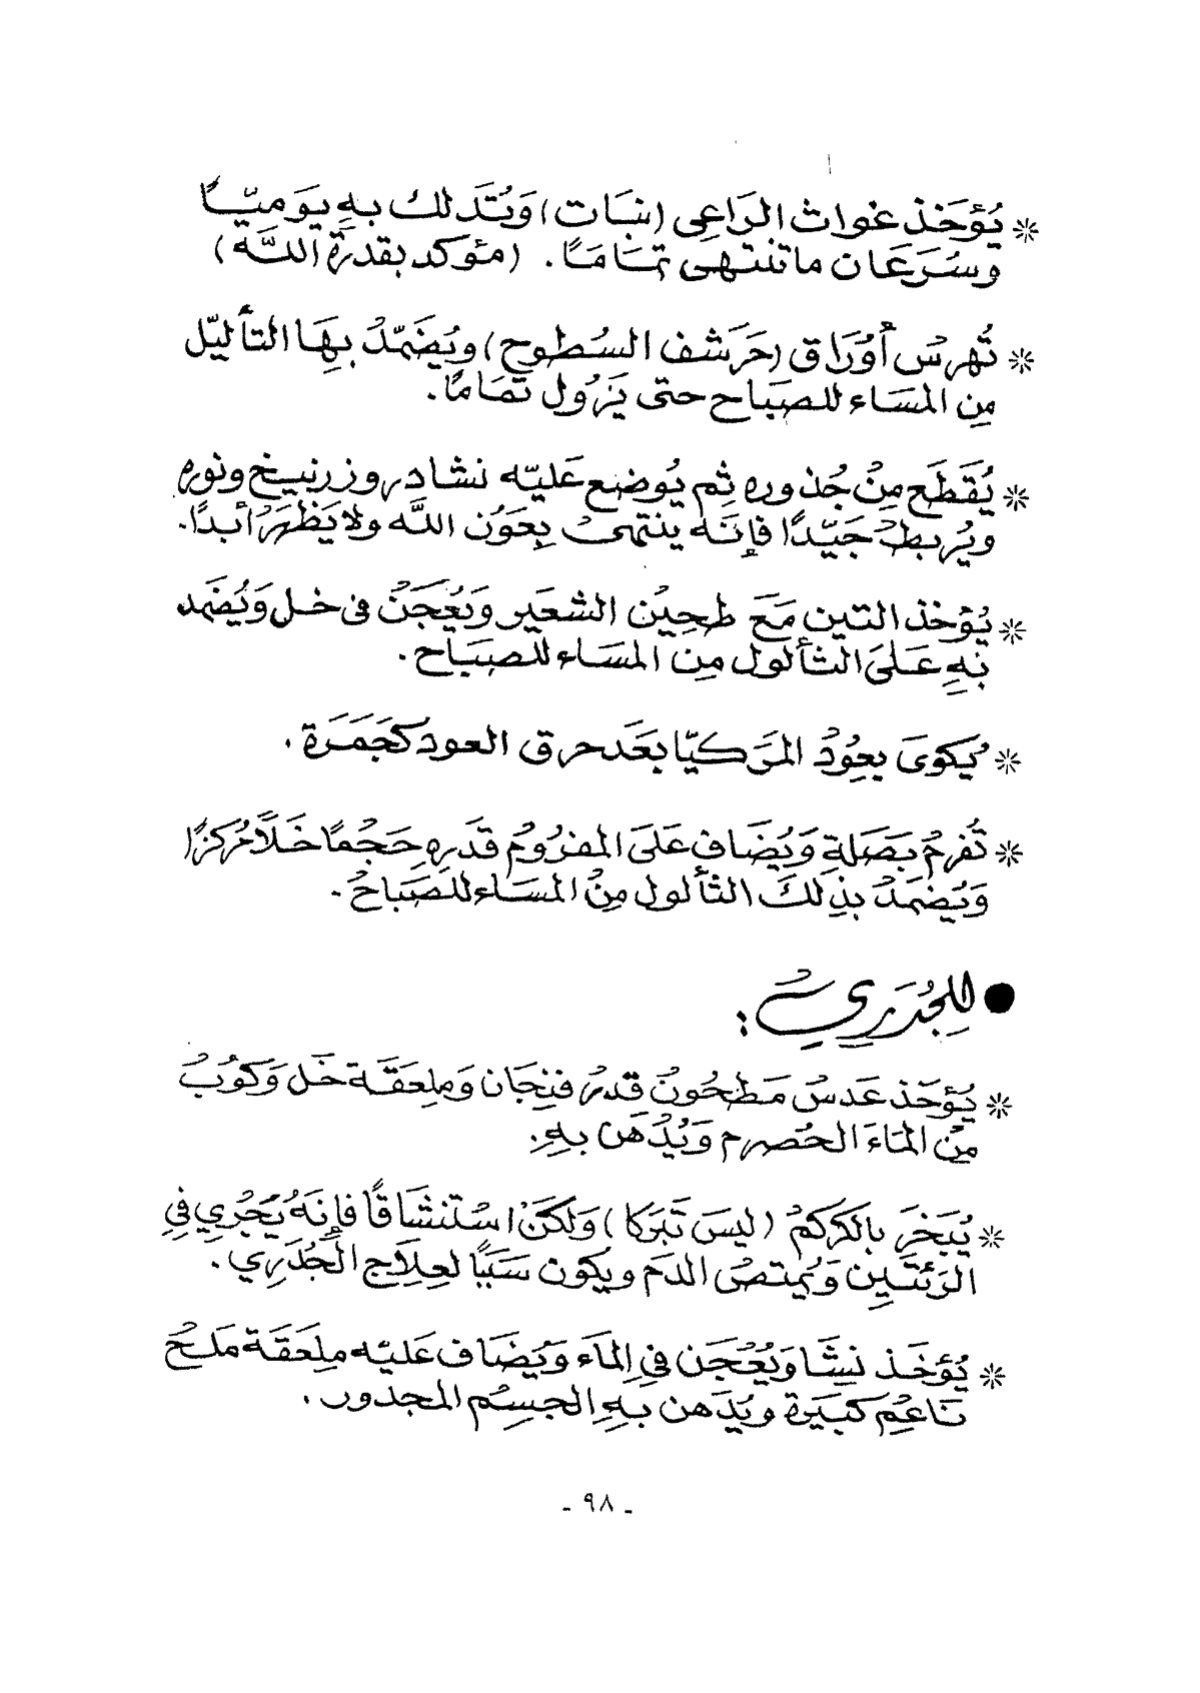 * يُؤخَذ غواث الرَاعِى (نبَات) وَتُدَلك بهِ يَوميّاً
وسُرَعَان ماتنتهى تمَامَاً . (مؤكد بقدرة اللَّه)
* تُهرسُ أوُرَاق (حَرَشف السُطوح) ويُضَمّدُ بِهَا التأليّل
مِن المسَاء للصبَاح حتى يَزُول تمَامًا.
* يُقَطَع مِنُ جُذوره ثم يُوضع عَليّه نشادر وزرنيخ ونوره
ويُربطُ جَيّدًا فإنَه ينتهىُ بِعَوُن اللَّه ولايَظهَرُ أبدًا.
* يُؤخذ التين مَعَ طحِيُن الشعَير وَيُعُجَنُ فى خل وَيُضَمد
بَهِ عَلىَ الثألول مِن المسَاء للصبَاح .
* يُكوىَ بِعُودُ المرَ كيّا بعَد حرق العود كجَمَرَة .
* تُفرمُ بَصَلةِ وَيُضَاف عَلىَ المفرُومُ قَدَرهِ حَجُمًا خَلاً مُركزًا
وَيُضمَدُ بذلِكَ الثألول مِنُ المسَاء للصَبَاحُ .
● لِلجُدَرِي :
* يُؤخَذ عَدَسُ مَطحُونُ قدرُ فنِجَان وَملِعَقَة خَل وَكوُبُ
مِنُ الماَء الحُصرم وَيُدُهَن بهِ.
* يُبَخَرَ بالكركمُ (ليسَ تَبَركا) وَلكَنُ اسُتنشَاقًا فإنَهُ يَجُرِي فِي
الرَئتَينِ وَيُمتصُ الدَم ويكون سَبَبًا لعِلاَج الجُدَرِي .
* يُؤخَذ نشَا وَيُعُجَن فِي الماَء وَيُضَاف عَليُه ملِعَقَة مَلحُ
نَاعُم كبَيَرة ويُدَهن بهِ الجسِمُ المجدور .
- ٩٨ -